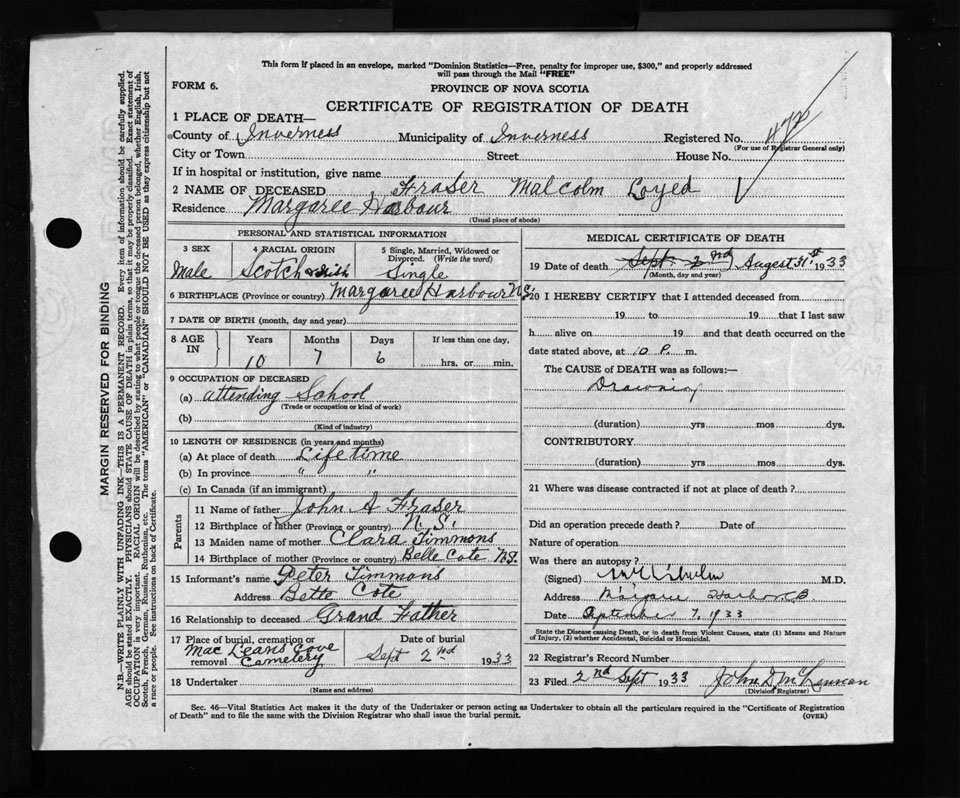 This form if placed in an envelope, marked "Dominion Statistics—Free, penalty for improper use, $300," and properly addressed
will pass through the Mail "FREE"
FORM 6.
PROVINCE OF NOVA SCOTIA
CERTIFICATE OF REGISTRATION OF DEATH
1 PLACE OF DEATH—
County of Inverness Municipality of Inverness Registered No. 472
(For use of Registrar General only)
City or Town Street House No.
If in hospital or institution, give name
2 NAME OF DECEASED Fraser Malcolm Loyed
Residence Margaree Harbour
(Usual place of abode)
PERSONAL AND STATISTICAL INFORMATION
3 SEX 4 RACIAL ORIGIN 5 Single, Married, Widowed or
Divorced. (Write the word)
Male Scotch Single
6 BIRTHPLACE (Province or country) Margaree Harbour N.S.
7 DATE OF BIRTH (month, day and year)
8 AGE IN Years Months Days If less than one day,
10 7 6 hrs. or min.
9 OCCUPATION OF DECEASED
(a) Attending School
(Trade or occupation or kind of work)
(b)
(Kind of industry)
10 LENGTH OF RESIDENCE (in years and months)
(a) At place of death Life time
(b) In province " "
(c) In Canada (if an immigrant)
Parents
11 Name of father John A Fraser
12 Birthplace of father (Province or country) N.S.
13 Maiden name of mother Clara Timmons
14 Birthplace of mother (Province or country) Belle Cote N.S.
15 Informant's name Peter Timmons
Address Belle Cote
16 Relationship to deceased Grand Father
17 Place of burial, cremation or removal Mac Leans Cove Cemetery
Date of burial
Sept 2nd 1933
18 Undertaker
(Name and address)
MEDICAL CERTIFICATE OF DEATH
19 Date of death Sept 2nd Augest 31st 1933
(Month, day and year)
20 I HEREBY CERTIFY that I attended deceased from
19 to 19 that I last saw
h alive on 19 and that death occurred on
date stated above, at 10 P. m.
The CAUSE of DEATH was as follows:—
Drowning
(duration) yrs mos dys.
CONTRIBUTORY
(duration) yrs mos dys.
21 Where was disease contracted if not at place of death?
Did an operation precede death? Date of
Nature of operation
Was there an autopsy?
(Signed) M.D.
Address Margaree Harbour
Date September 7, 1933
State the Disease causing Death, or in death from Violent Causes, state (1) Means and Nature
of Injury, (2) whether Accidental, Suicidal or Homicidal.
22 Registrar's Record Number
23 Filed 2nd Sept 1933 John D McLennan
(Division Registrar)
Sec. 46—Vital Statistics Act makes it the duty of the Undertaker or person acting as Undertaker to obtain all the particulars required in the "Certificate of Registration
of Death" and to file the same with the Division Registrar who shall issue the burial permit.
(OVER)
MARGIN RESERVED FOR BINDING
N.B.—WRITE PLAINLY WITH UNFADING INK—THIS IS A PERMANENT RECORD. Every item of information should be carefully supplied.
AGE should be stated EXACTLY. PHYSICIANS should STATE CAUSE OF DEATH in plain terms, so that it may be properly classified. Exact statement of
OCCUPATION is very important. RACIAL ORIGIN will be described by stating to what people or tongue the deceased person belonged, whether English, Irish,
Scotch, French, German, Russian, Ruthenian, etc. The terms "AMERICAN" or "CANADIAN" SHOULD NOT BE USED as they express citizenship but not
a race or people. See instructions on back of Certificate.